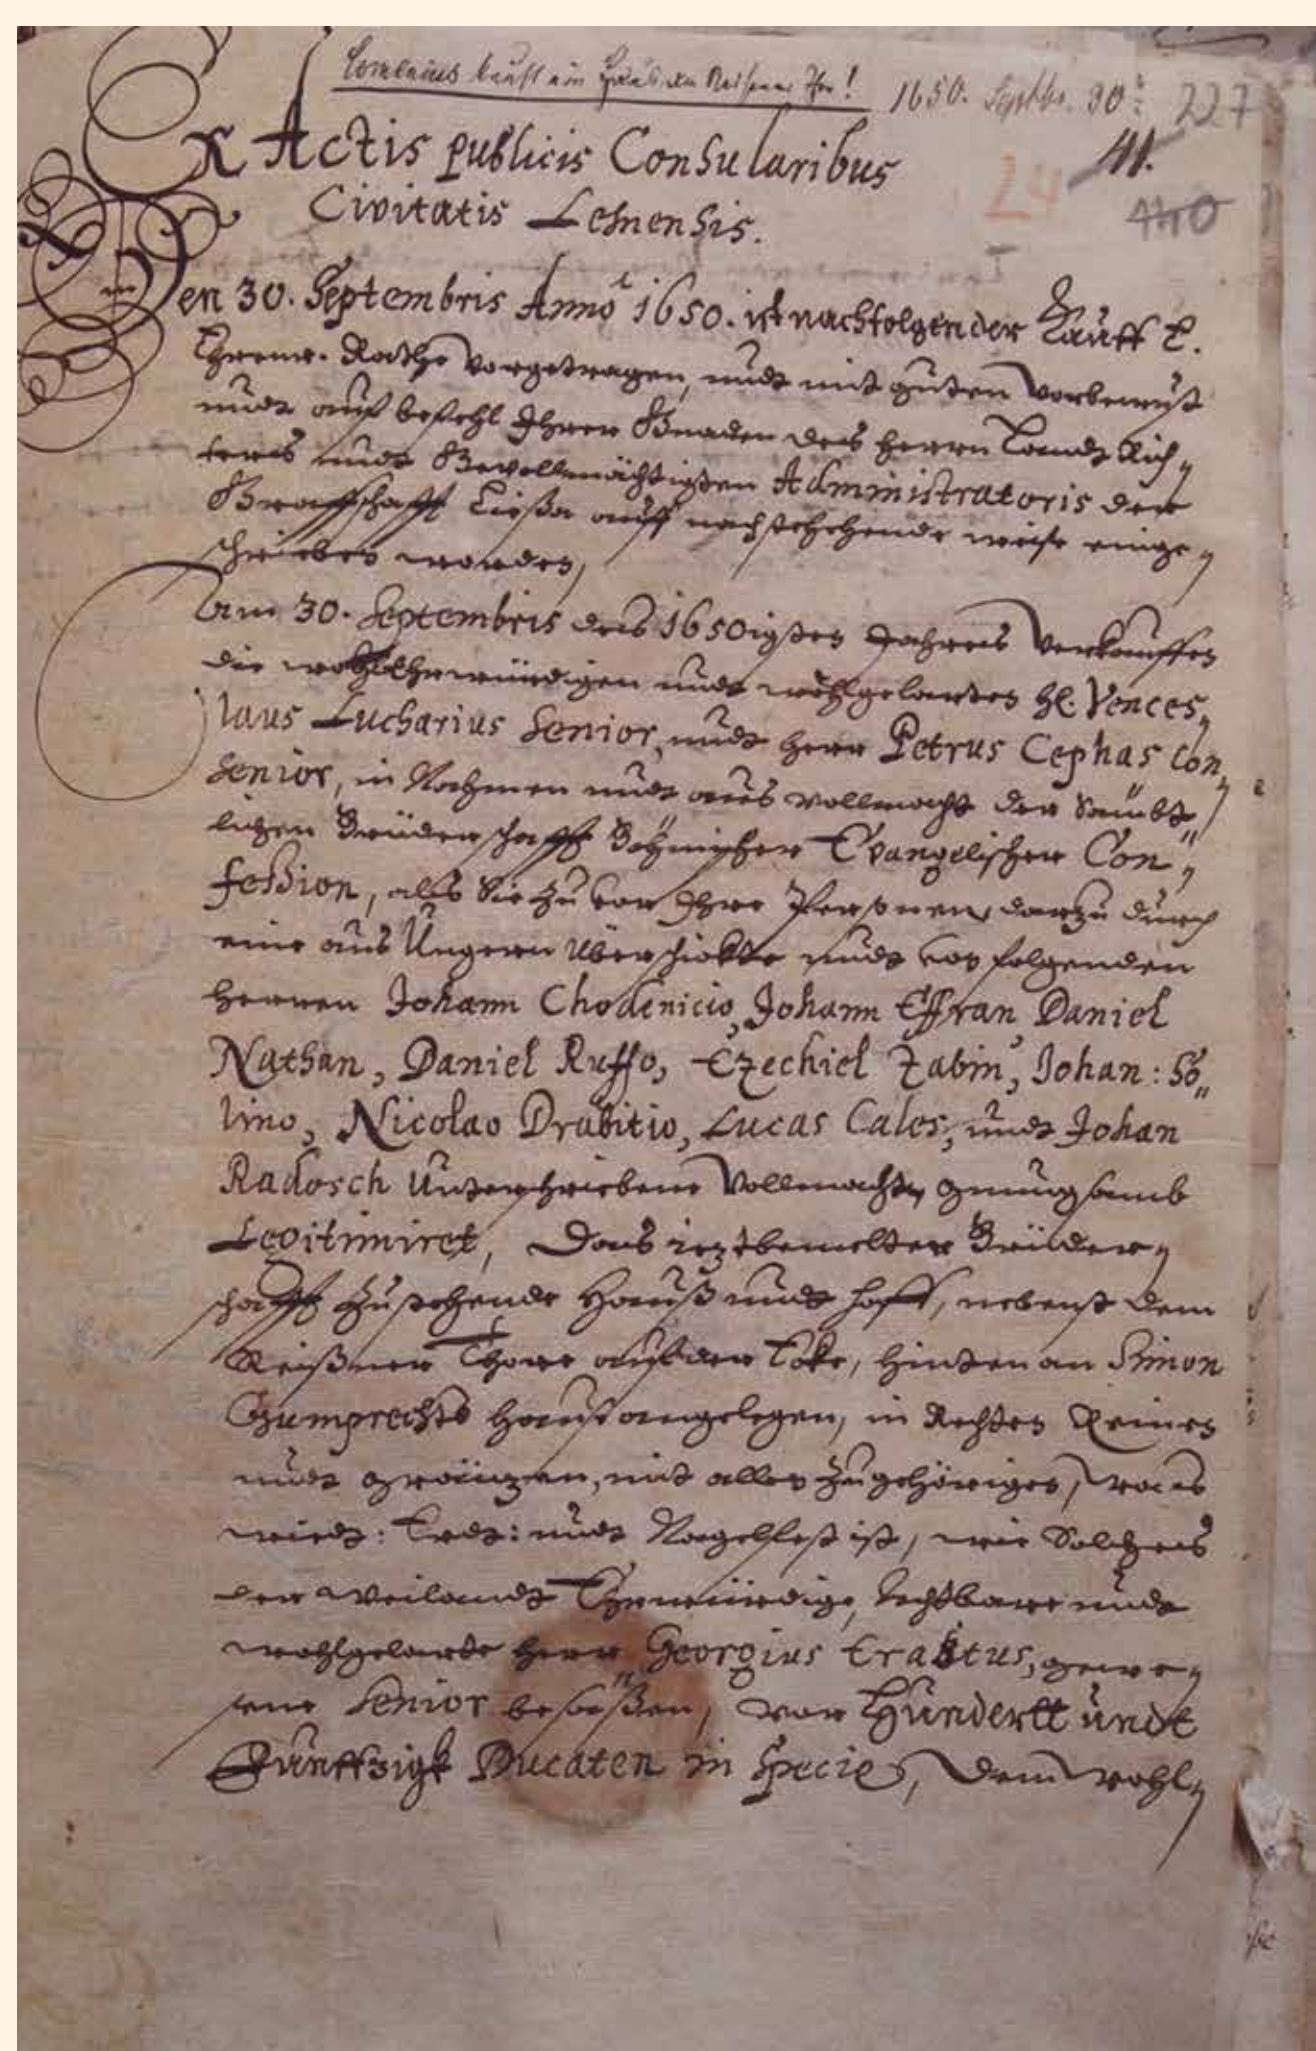 Comenius kauft ein Haus am Reisner Thor! 1650. Septbr. 30 227
Ex Actis publicis Consularibus 41.
Civitatis Lesnensis. 24 440
Den 30. Septembris Anno 1650. ist nachfolgender Kauff E.
Ehrenv. Rathe vorgetragen, undt mit guten Vorbewust
undt auf befehl Ihrer Gnaden des Herrn Landt Rich„
ters undt Gevollmächtigten Administratoris der
Graffschafft Lissa auff nachstehende weise einge„
schrieben worden,
Am 30. Septembris des 1650igsten Jahres Verkauffen
die wohlEhrwürdigen undt wohlgelarten H. Vences„
laus Lucharius Senior, undt Herr Petrus Cephas Con„
senior, in Nahmen undt aus vollmacht der Sämbt„
lichen Brüderschafft Böhmischer Evangelischer Con„
fession, als Sie zu vor Ihre Personen darzu durch
eine aus Ungern Uberschickte undt von folgenden
Herren Johann Chodenicio, Johann Effran, Daniel
Nathan, Daniel Ruffo, Ezechiel Zabin, Johan: So„
lino, Nicolao Drabitio, Lucas Cales, undt Johan
Radosch Unterschriebene Vollmacht, gnungsamb
Legitimiret, Das ietztbemelter Brüder„
schafft zustehende Hauß undt Hoff, nebenst dem
Reißner Thore auf der Ecke, hinten an Simon
Gumprechts Hauß angelegen, in Rechten Reinen
undt gräntzen, mit allen Zugehörigen, was
wiedt: Erdt: undt Nagelfest ist, wie Solches
der Weilandt Ehrwürdige, Achtbare undt
wohlgelarte Herr Georgius Erastus, gewe„
sene Senior besessen, vor Hundertt undt
Funffzigk Ducaten in Specie, Dem wohl„